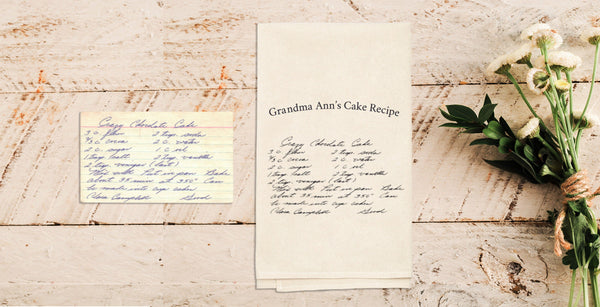 Crazy Chocolate Cake
3 C. flour 2 tsp. soda
2/3 C. cocoa 2 C. water
2 C. sugar 1 C. oil
1 tsp salt 2 tsp. vanilla
2 tsp. vinegar (last)
Mix well. Put in pan Bake
about 35 min at 350° Can
be made into cup cakes
Clara Campbell Good
Grandma Ann's Cake Recipe
Crazy Chocolate Cake
3 C. flour 2 tsp. soda
2/3 C. cocoa 2 C. water
2 C. sugar 1 C. oil
1 tsp salt 2 tsp. vanilla
2 tsp. vinegar (last)
Mix well. Put in pan Bake
about 35 min at 350° Can
be made into cup cakes
Clara Campbell Good